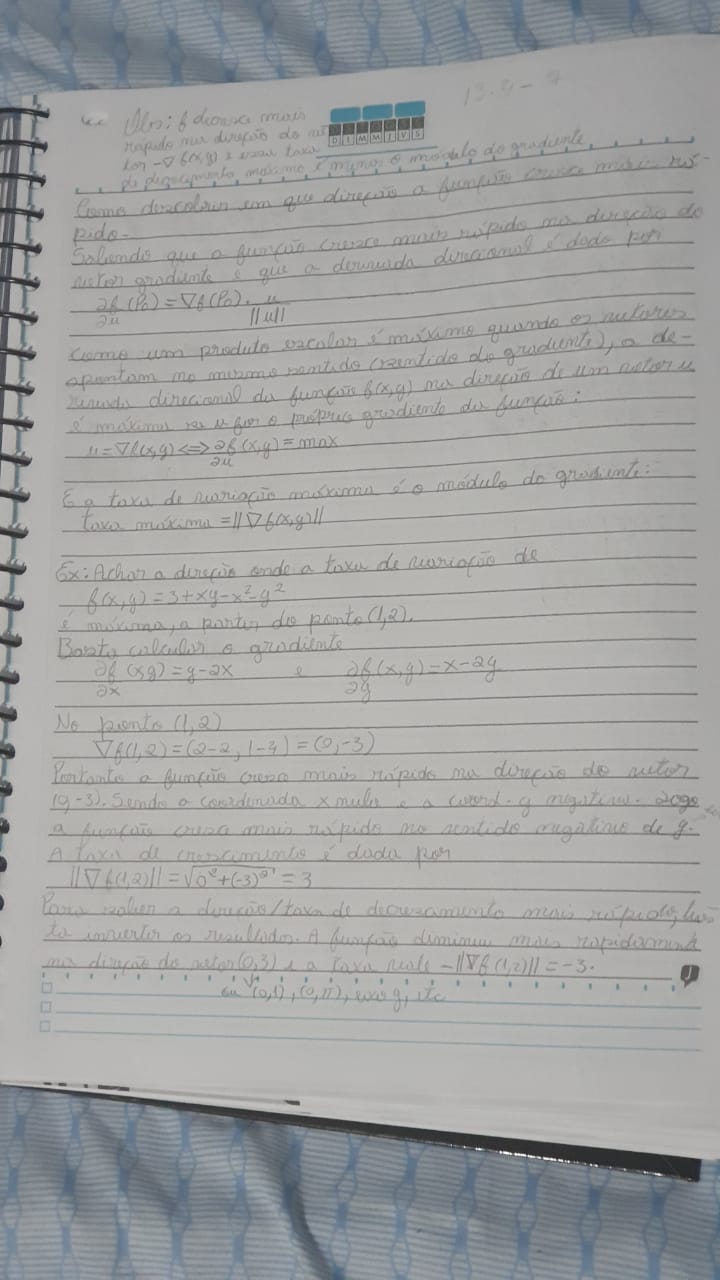 13.4 - 7
Obs: f decresce mais
rápido na direção do ve
tor -∇f(x,y) e essa taxa
D S T Q Q S S
D I M M J V S
de decrescimento máximo é menos o módulo do gradiente
Como descobrir em que direção a função cresce mais rá-
pido.
Sabendo que a função cresce mais rápido na direção do
vetor gradiente e que a derivada direcional é dada por
∂f (P₀) = ∇f(P₀). u
∂u ||u||
Como um produto escalar é máximo quando os vetores
apontam no mesmo sentido (sentido do gradiente), a de-
rivada direcional da função f(x,y) na direção de um vetor u
é máxima se u for o próprio gradiente da função:
u = ∇f(x,y) <=> ∂f (x,y) = max
∂u
E a taxa de variação máxima é o módulo do gradiente:
taxa máxima = ||∇f(x,y)||
Ex: Achar a direção onde a taxa de variação de
f(x,y) = 3 + xy - x² - y²
é máxima, a partir do ponto (1,2).
Basta calcular o gradiente
∂f (x,y) = y - 2x e ∂f (x,y) = x - 2y
∂x ∂y
No ponto (1,2)
∇f(1,2) = (2-2, 1-4) = (0,-3)
Portanto a função cresce mais rápido na direção do vetor
(0,-3). Sendo a coordenada x nula e a coord. y negativa. Logo
a função cresce mais rápido no sentido negativo de y.
A taxa de crescimento é dada por
||∇f(1,2)|| = √0² + (-3)² = 3
Para saber a direção/taxa de decrescimento mais rápido, bas
ta inverter os resultados. A função diminui mais rapidamente
na direção do vetor (0,3) e a taxa vale -||∇f(1,2)|| = -3.
ou (0,1), (0,π), eixo y, etc